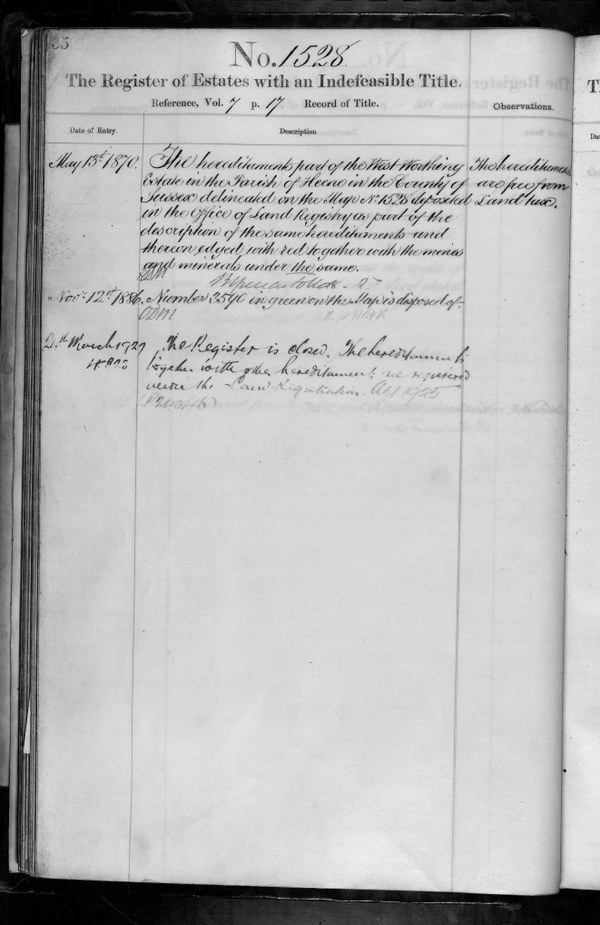 35
No. 1528
The Register of Estates with an Indefeasible Title.
Reference, Vol. 7 p. 17. Record of Title.
Observations.
Date of Entry.
Description.
May 13th 1870.
The hereditaments part of the West Worthing
Estate in the Parish of Heene in the County of
Sussex delineated on the Map No. 1528 deposited
in the Office of Land Registry as part of the
description of the same hereditaments and
thereon edged with red together with the mines
and minerals under the same.
The hereditaments
are free from
Land tax.
Novr. 12th 1886.
Number 3590 in green on the Map is disposed of.
March 1927
The Register is closed. The hereditaments
together with other hereditaments are registered
under the Land Registration Act 1925